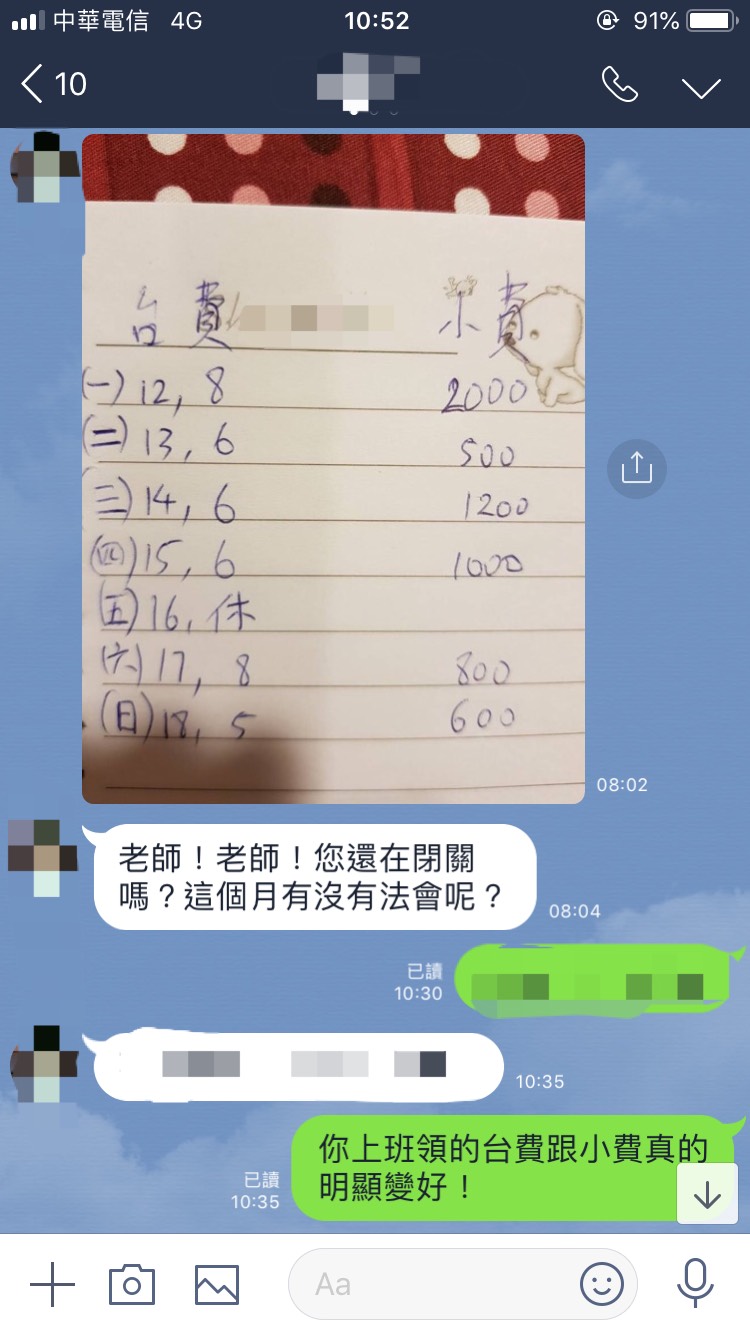 中華電信 4G 10:52 91%
10
台費 小費
(一)12, 8 2000
(二)13, 6 500
(三)14, 6 1200
(四)15, 6 1000
(五)16, 休
(六)17, 8 800
(日)18, 5 600
08:02
老師！老師！您還在閉關
嗎？這個月有沒有法會呢？
08:04
已讀
10:30
10:35
你上班領的台費跟小費真的
明顯變好！
已讀
10:35
Aa